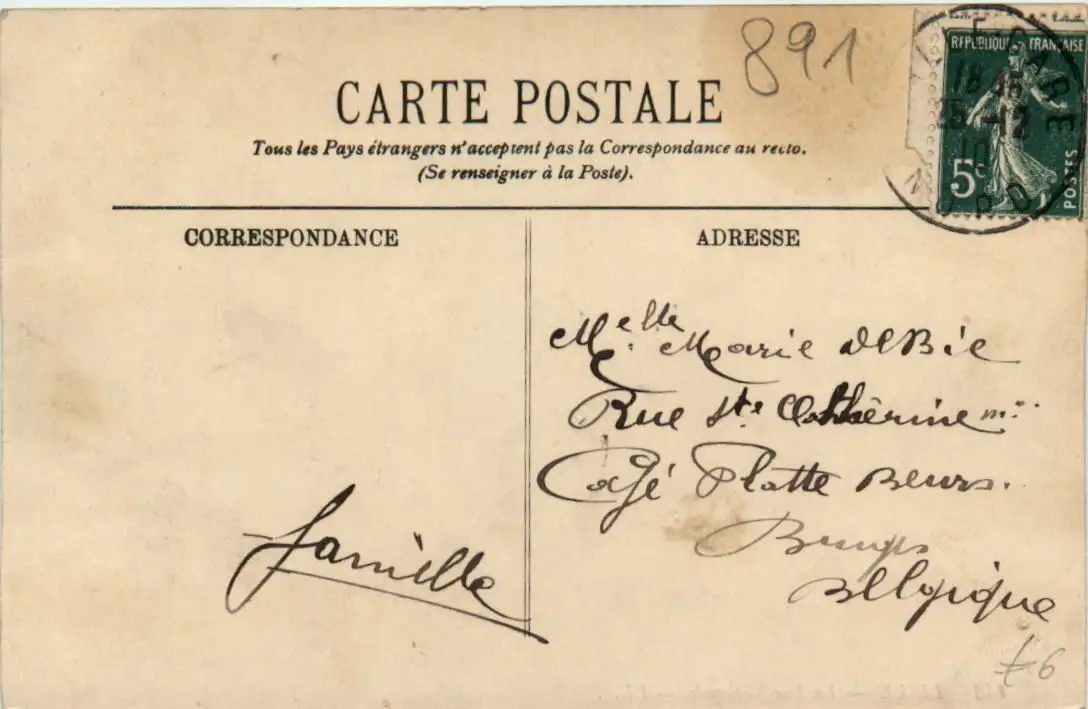 891
CARTE POSTALE
Tous les Pays étrangers n'acceptent pas la Correspondance au recto.
(Se renseigner à la Poste).
RÉPUBLIQUE FRANÇAISE
5c
POSTES
E-GARE
18 45
25 -12
10
NORD
CORRESPONDANCE
ADRESSE
Melle Marie DeBie
Rue Ste Cathèrine
Café Platte Beurs.
Bruges
Bellgique
famille
£6